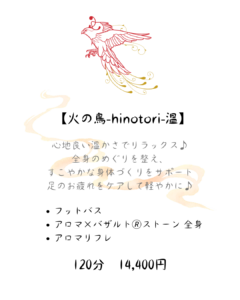 【火の鳥-hinotori-温】
心地良い温かさでリラックス♪
全身のめぐりを整え、
すこやかな身体づくりをサポート
足のお疲れをケアして軽やかに♪
• フットバス
• アロマ×バザルト®ストーン 全身
• アロマリフレ
120分 14,400円